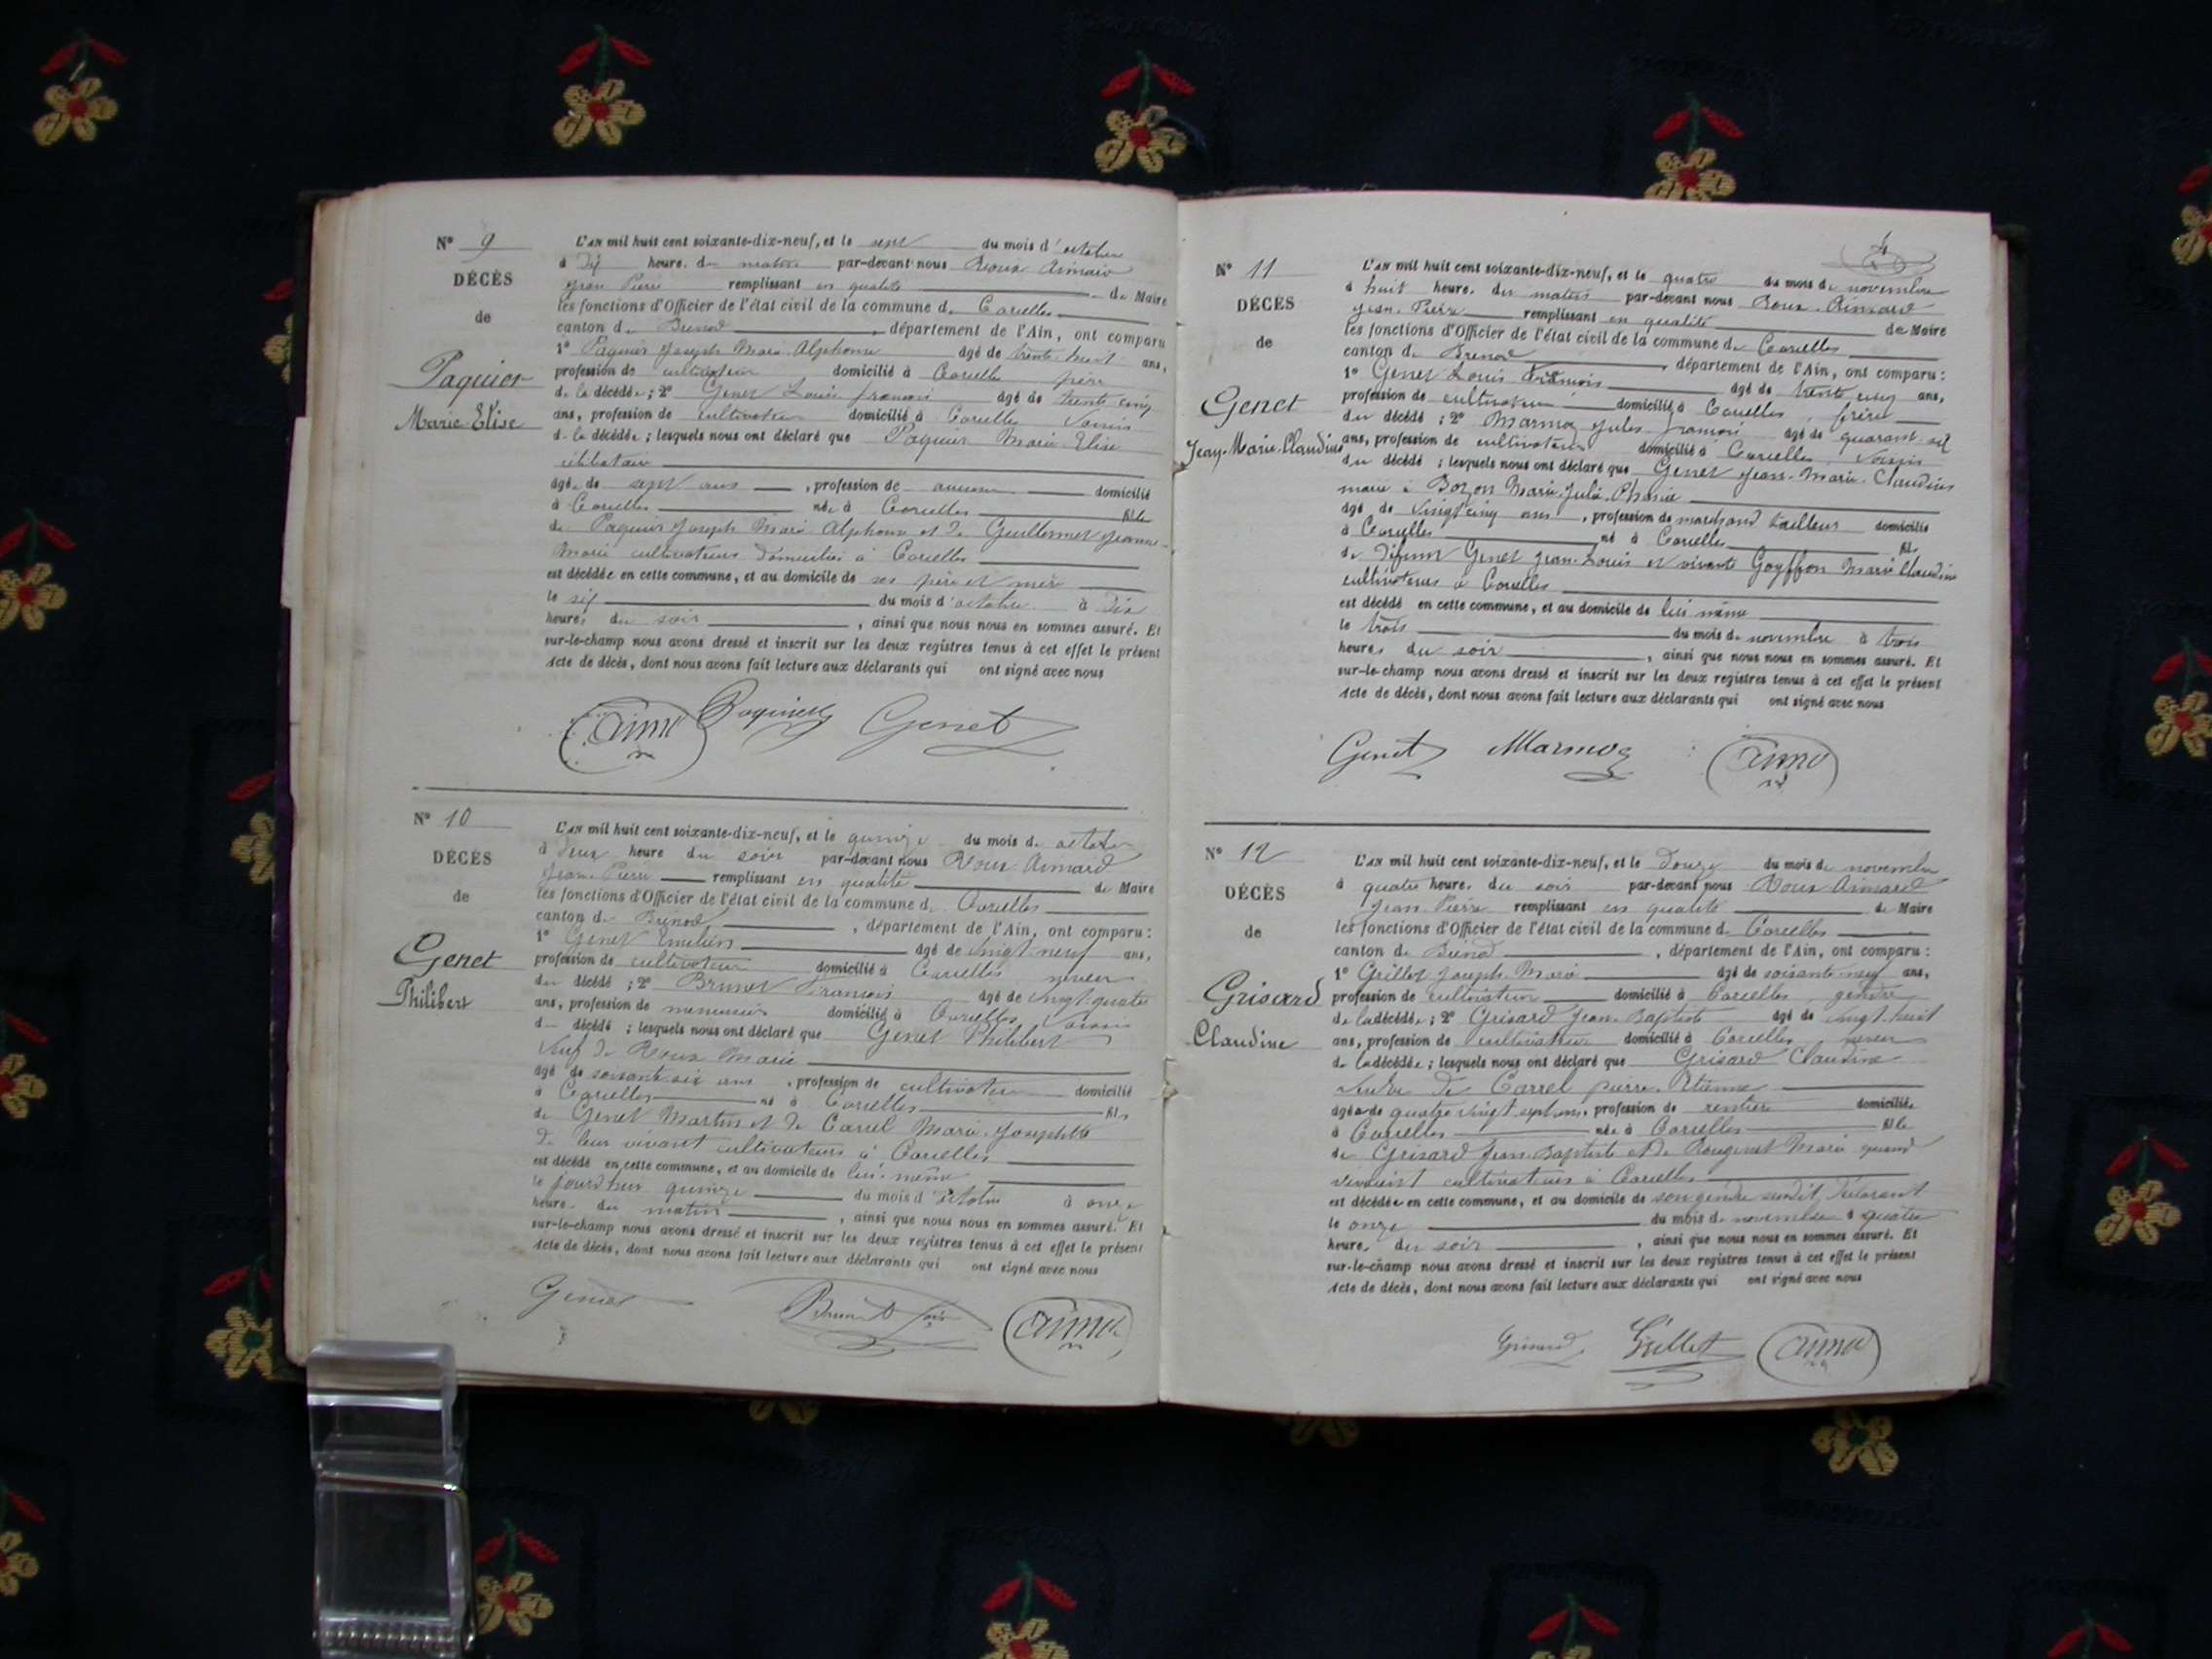 N° 9
DÉCÈS
de
Paquier
Marie Elise
L'AN mil huit cent soixante-dix-neuf, et le sept du mois d'octobre
à dix heure. du matin par-devant nous Roux Aimard
Jean Pierre remplissant en qualité de Maire
les fonctions d'Officier de l'état civil de la commune de Corcelles
canton de Brenod, département de l'Ain, ont comparu
1° Paquier Joseph Marie Alphonse âgé de trente huit ans,
profession de cultivateur domicilié à Corcelles père
de la décédée; 2° Genet Louis françois âgé de trente cinq
ans, profession de cultivateur domicilié à Corcelles Voisin
de la décédée; lesquels nous ont déclaré que Paquier Marie Elise
célibataire
âgée de sept ans, profession de aucune domicilié
à Corcelles née à Corcelles fille
de Paquier Joseph Marie Alphonse et de Guillermet Jeanne-
Marie cultivateurs domiciliés à Corcelles
est décédée en cette commune, et au domicile de ses père et mère
le six du mois d'octobre à dix
heures du soir, ainsi que nous nous en sommes assuré. Et
sur-le-champ nous avons dressé et inscrit sur les deux registres tenus à cet effet le présent
Acte de décès, dont nous avons fait lecture aux déclarants qui ont signé avec nous
Genet
N° 10
DÉCÈS
de
Genet
Philibert
L'AN mil huit cent soixante-dix-neuf, et le quinze du mois de octobre
à deux heure du soir par-devant nous Roux Aimard
Jean Pierre remplissant en qualité de Maire
les fonctions d'Officier de l'état civil de la commune de Corcelles
canton de Brénod, département de l'Ain, ont comparu:
1° Genet Emilien âgé de vingt neuf ans,
profession de cultivateur domicilié à Corcelles neveu
du décédé; 2° Brunet François âgé de vingt quatre
ans, profession de menuisier domicilié à Corcelles, Voisin
du décédé; lesquels nous ont déclaré que Genet Philibert
Veuf de Roux Marie
âgé de soixante six ans, profession de cultivateur domicilié
à Corcelles né à Corcelles fils
de Genet Martin et de Carrel Marie Josephte
de leur vivant cultivateurs à Corcelles
est décédé en cette commune, et au domicile de lui-même
le jourd'hui quinze du mois d'octobre à onze
heure. du matin, ainsi que nous nous en sommes assuré. Et
sur-le-champ nous avons dressé et inscrit sur les deux registres tenus à cet effet le présent
Acte de décès, dont nous avons fait lecture aux déclarants qui ont signé avec nous
Genet Brunet
N° 11
DÉCÈS
de
Genet
Jean-Marie-Claudius
L'AN mil huit cent soixante-dix-neuf, et le quatre du mois de novembre
à huit heure. du matin par-devant nous Roux Aimard
Jean Pierre remplissant en qualité de Maire
les fonctions d'Officier de l'état civil de la commune de Corcelles
canton de Brenod, département de l'Ain, ont comparu:
1° Genet Louis François âgé de trente cinq ans,
profession de cultivateur domicilié à Corcelles, frère
du décédé; 2° Marmoz Jules françois âgé de quarant six
ans, profession de cultivateur domicilié à Corcelles, Voisin
du décédé; lesquels nous ont déclaré que Genet Jean-Marie-Claudius
marié à Bozon Marie Julie
âgé de vingt cinq ans, profession de marchand tailleur domicilié
à Corcelles né à Corcelles fils
de défunt Genet Jean-Louis et vivante Goyffon Marie Claudine
cultivateurs à Corcelles
est décédé en cette commune, et au domicile de lui même
le trois du mois de novembre à trois
heures du soir, ainsi que nous nous en sommes assuré. Et
sur-le-champ nous avons dressé et inscrit sur les deux registres tenus à cet effet le présent
Acte de décès, dont nous avons fait lecture aux déclarants qui ont signé avec nous
Genet Marmoz
N° 12
DÉCÈS
de
Grisard
Claudine
L'AN mil huit cent soixante-dix-neuf, et le douze du mois de novembre
à quatre heure. du soir par-devant nous Roux Aimard
Jean Pierre remplissant en qualité de Maire
les fonctions d'Officier de l'état civil de la commune de Corcelles
canton de Brénod, département de l'Ain, ont comparu:
1° Grillet Joseph Marie âgé de soixante neuf ans,
profession de cultivateur domicilié à Corcelles, gendre
de la décédée; 2° Grisard Jean-Baptiste âgé de vingt huit
ans, profession de cultivateur domicilié à Corcelles neveu
de la décédée; lesquels nous ont déclaré que Grisard Claudine
veuve de Carrel pierre Etienne
âgée de quatre vingt sept ans, profession de rentière domiciliée
à Corcelles née à Corcelles fille
de Grisard Jean-Baptiste et de Rougemet Marie quand
vivaient cultivateurs à Corcelles
est décédée en cette commune, et au domicile de son gendre susdit, déclarant
le onze du mois de novembre à quatre
heure. du soir, ainsi que nous nous en sommes assuré. Et
sur-le-champ nous avons dressé et inscrit sur les deux registres tenus à cet effet le présent
Acte de décès, dont nous avons fait lecture aux déclarants qui ont signé avec nous
Grisard Grillet